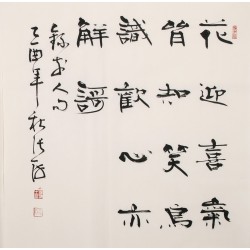 花迎喜氣
皆知笑鳥
識歡心亦
解謌
錄前人句
乙酉年秋